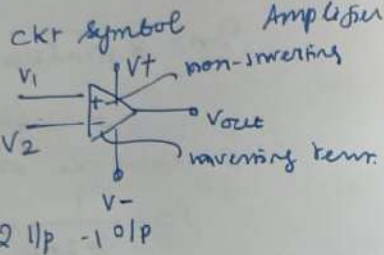 ckt symbol Amplifier
V+ non-inverting
V1
+
Vout
-
V2 inverting term.
V-
2 I/p - 1 O/p